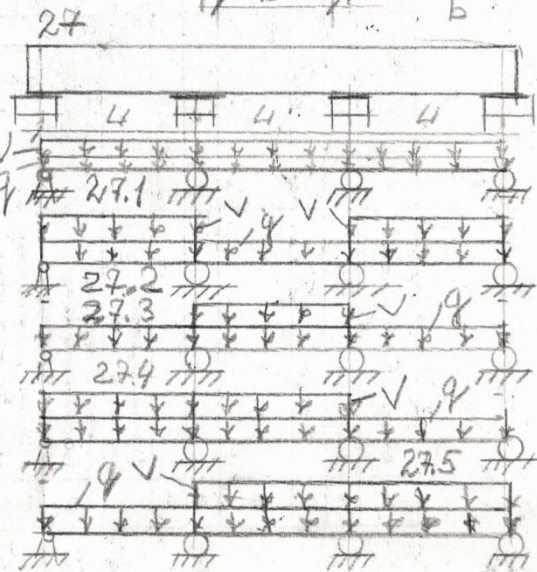 27
b
4 4 4
v
q
27.1
v q v
27.2
27.3
v q
27.4
v q
27.5
q v